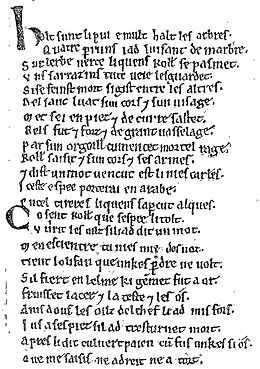 Halt sunt li pui e mult halt les arbres.
Quatre piruns i ad luisant de marbre.
Sur lerbe verte li quens Roll se pasmet.
Uns sarrazins tute veie lesguardet.
Si se feinst mort si gist entre les altres.
Del sanc luat sun cors ⁊ sun uisage.
Met sei en piez ⁊ de curre sastet.
Bels fut ⁊ forz ⁊ de grant uasselage.
Par sun orgoill cumencet mortel rage.
Roll saisit ⁊ sun cors ⁊ ses armes.
⁊ dist un mot uencut est li nies carles.
Iceste espee porterai en arabe.
En cel tireres li quens saperçut alques.
Co sent Roll que sespee li tolt.
Uurit les oilz si li ad dit un mot.
Men escientre tu nies mie des noz.
Tient lolifan que unkes pdre ne uolt.
Sil fiert en lelme ki gemet fut a or.
Fruisset lacer ⁊ la teste ⁊ les os.
Amsdous les oilz del chef li ad mis fors.
Jus a ses piez si lad tresturnet mort.
Apres li dit culuert paien cum fus unkes si os.
Que me saisis ne a dreit ne a tort.